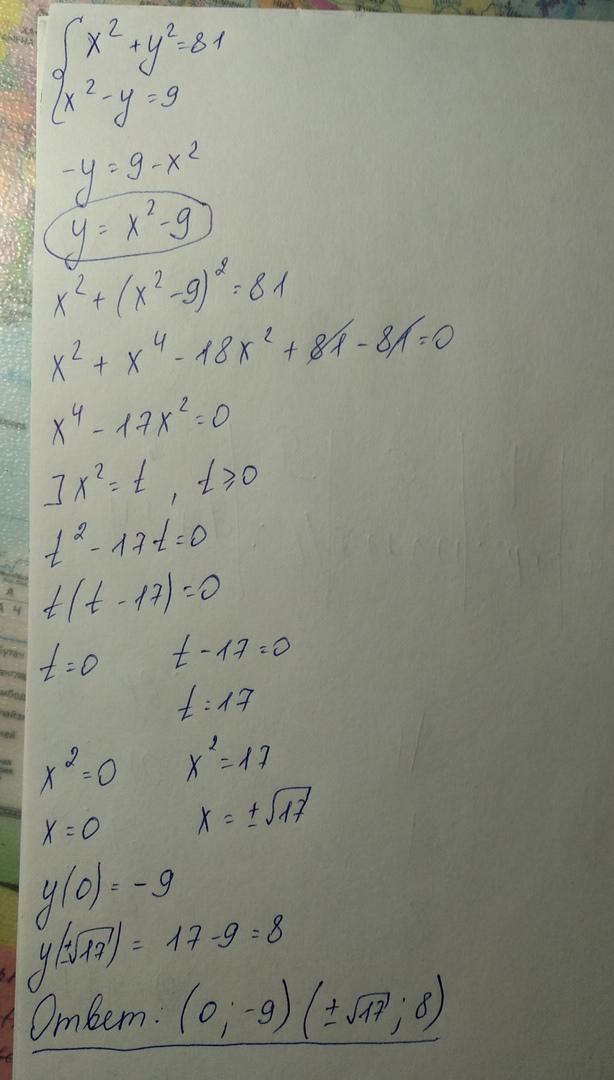 { x² + y² = 81
x² - y = 9
-y = 9 - x²
y = x² - 9
x² + (x² - 9)² = 81
x² + x⁴ - 18x² + 81 - 81 = 0
x⁴ - 17x² = 0
] x² = t , t ⩾ 0
t² - 17t = 0
t(t - 17) = 0
t = 0 t - 17 = 0
t = 17
x² = 0 x² = 17
x = 0 x = ±√17
y(0) = -9
y(±√17) = 17 - 9 = 8
Ответ: (0 ; -9) (±√17 ; 8)